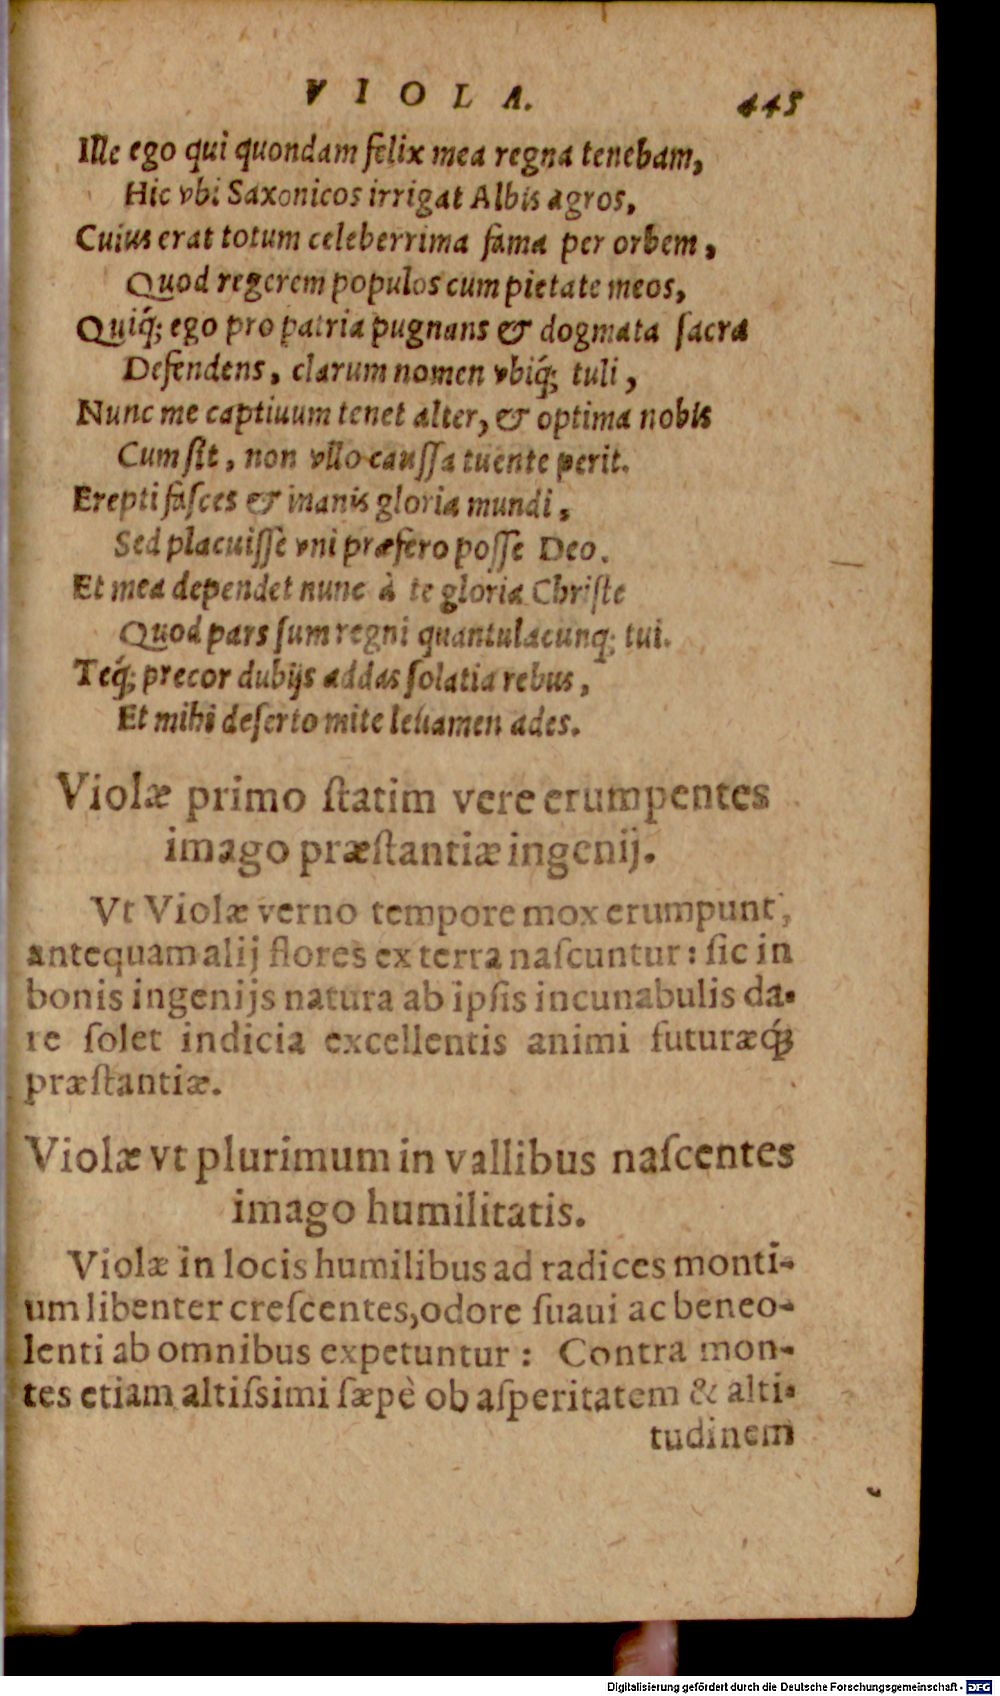 VIOLA. 445
Ille ego qui quondam felix mea regna tenebam,
Hic vbi Saxonicos irrigat Albis agros,
Cuius erat totum celeberrima fama per orbem,
Quod regerem populos cum pietate meos,
Quiq́; ego pro patria pugnans & dogmata ſacra
Defendens, clarum nomen vbiq́; tuli,
Nunc me captiuum tenet alter, & optima nobis
Cum ſit, non vllo cauſſa tuente perit.
Erepti faſces & inanis gloria mundi,
Sed placuiſſe vni præfero poſſe Deo.
Et mea dependet nunc à te gloria Chriſte
Quod pars ſum regni quantulacunq; tui.
Teq́; precor dubijs addas ſolatia rebus,
Et mihi deſerto mite leuamen ades.
Violæ primo ſtatim vere erumpentes
imago præſtantiæ ingenij.
Vt Violæ verno tempore mox erumpunt,
antequam alij flores ex terra naſcuntur: ſic in
bonis ingenijs natura ab ipſis incunabulis da-
re ſolet indicia excellentis animi futuræq́;
præſtantiæ.
Violæ vt plurimum in vallibus naſcentes
imago humilitatis.
Violæ in locis humilibus ad radices monti-
um libenter creſcentes, odore ſuaui ac beneo-
lenti ab omnibus expetuntur: Contra mon-
tes etiam altiſsimi ſæpè ob aſperitatem & alti-
tudinem
Digitalisierung gefördert durch die Deutsche Forschungsgemeinschaft - DFG